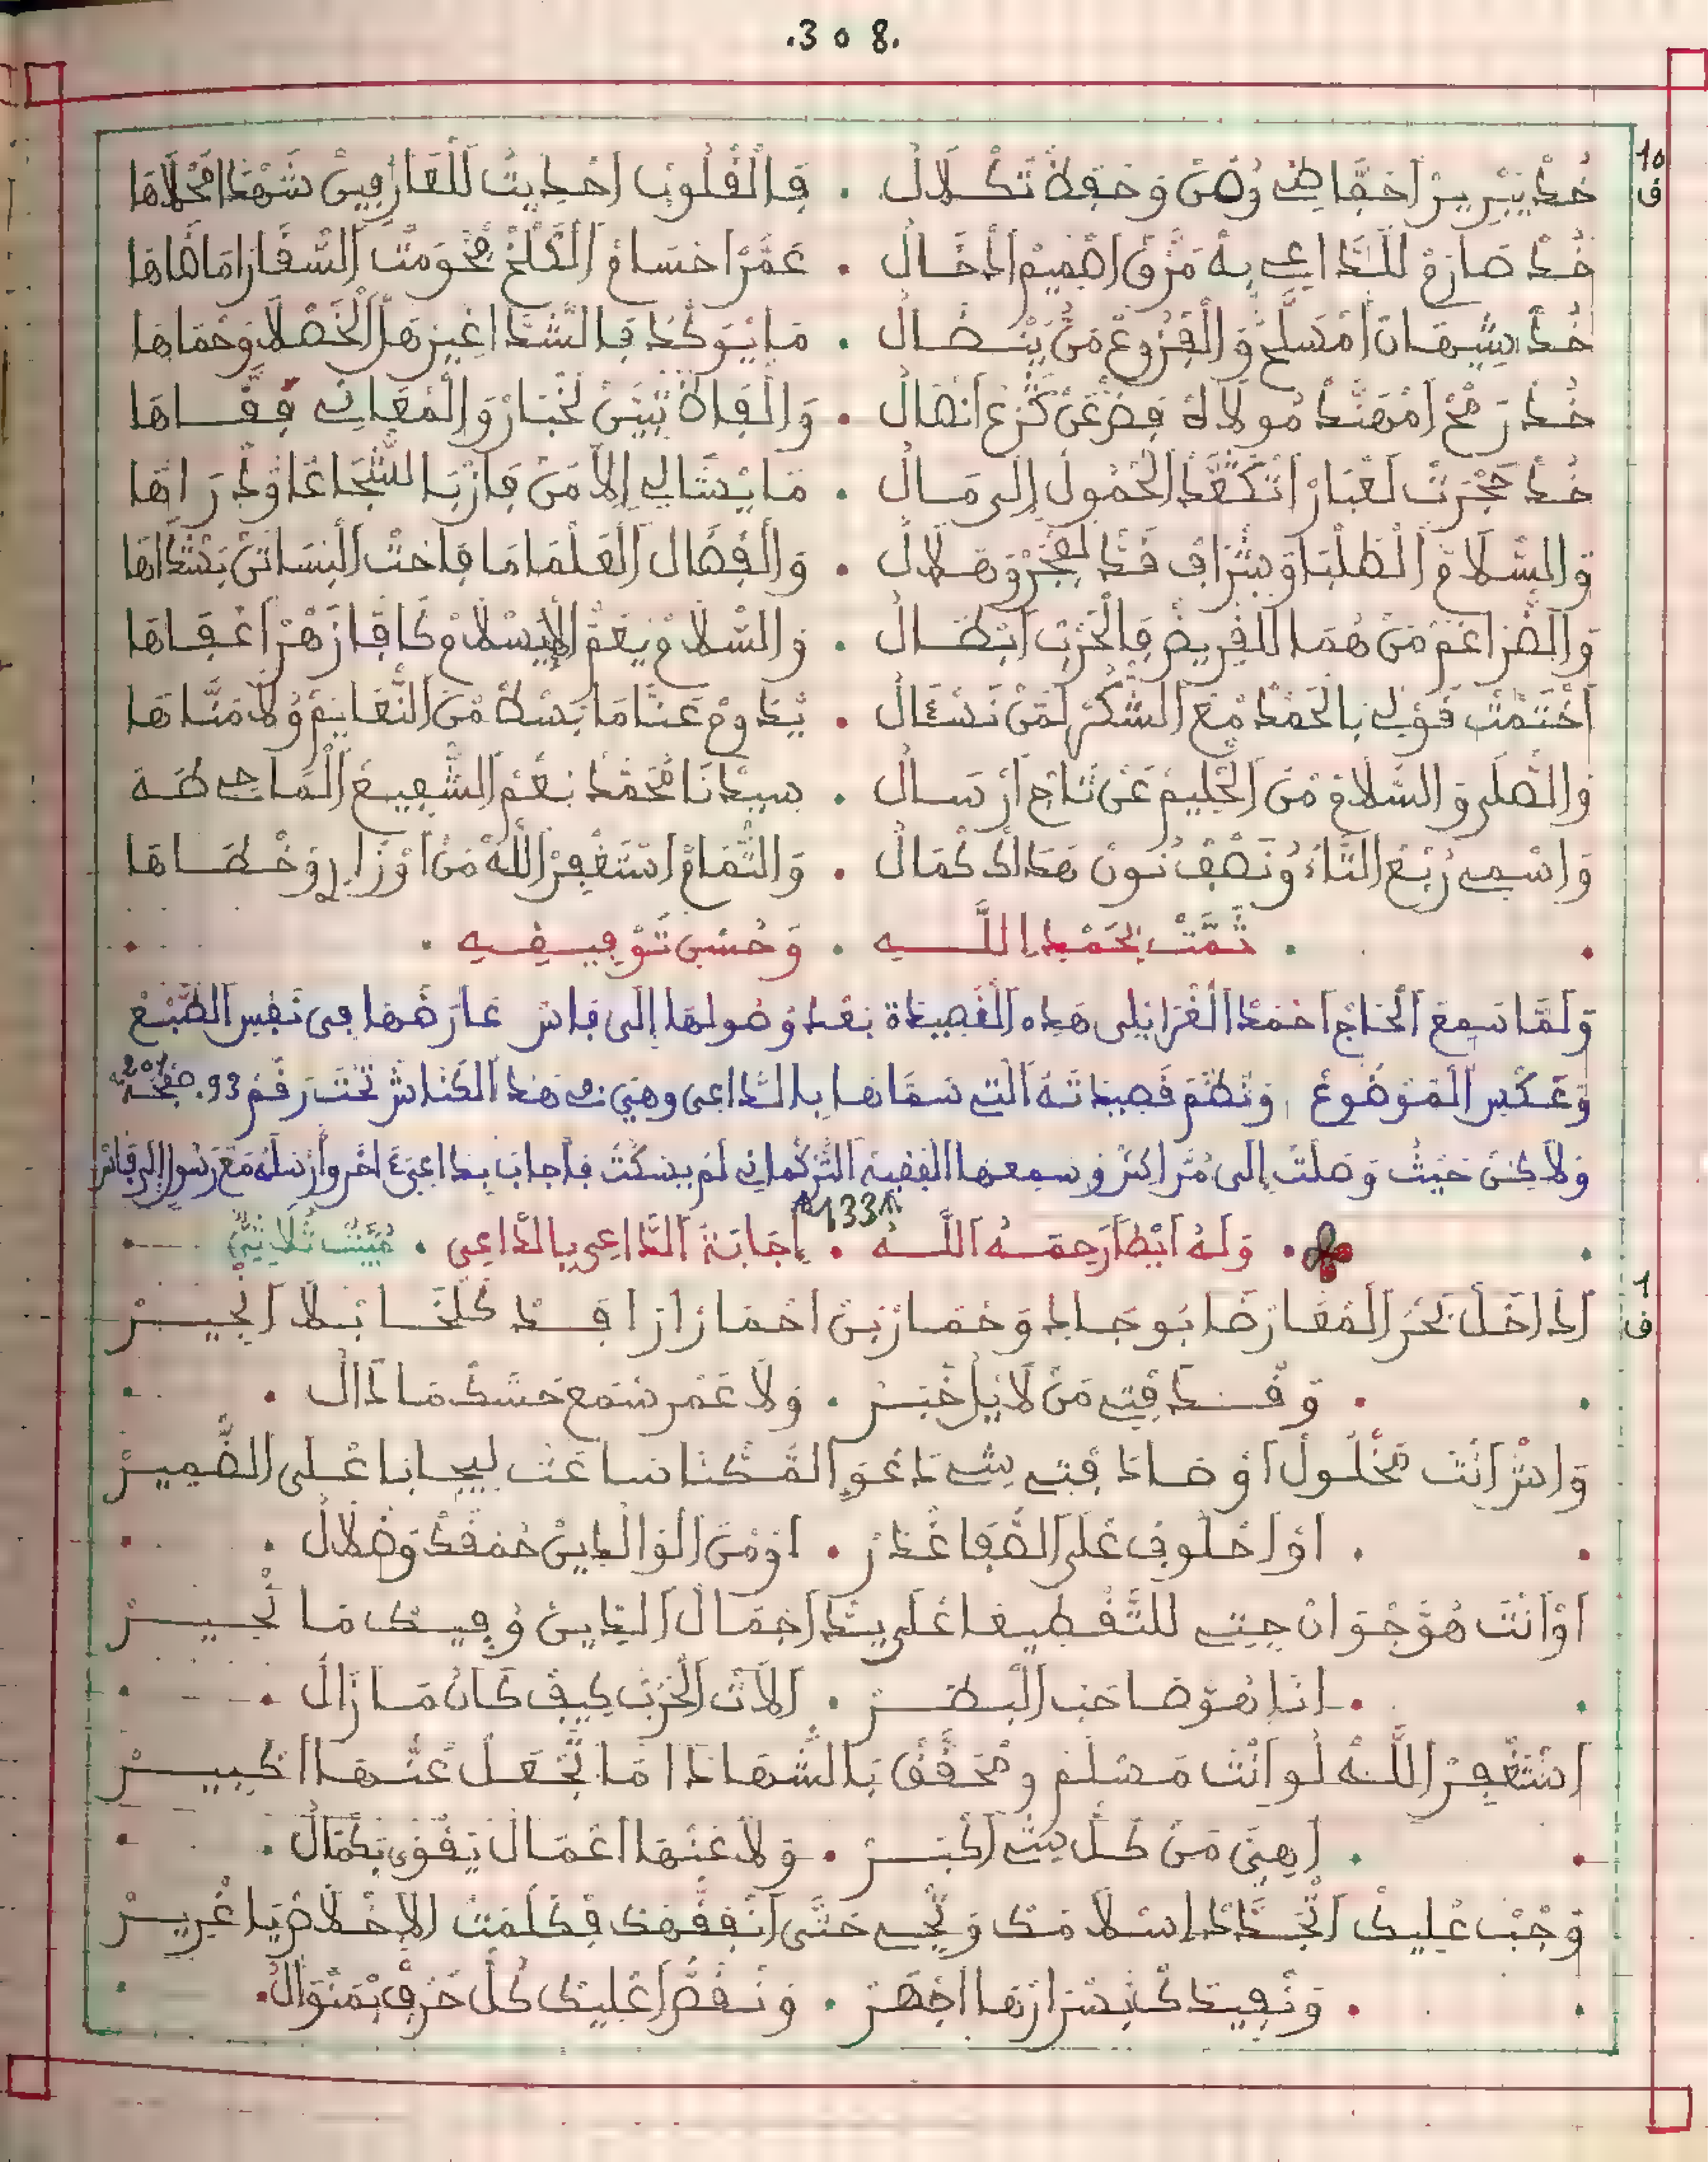 .308.
10
ف
خُذْ يَبْرِيزْ اَحَفَّاظِي وُصُنْ وَحَفْظَهْ تَكْلَالْ . فَالْقْلُوبْ اَحْدِيثْ للْعَارْفِينْ شَهْدَا مَحْلَاهَا
خُذْ صَارَمْ للدَّاعِي بِهْ مَزَّقْ اَهْمِيمْ اَدْخَالْ . عَمَّرْ اَحْسَامْ
خُذْ اَمْسَلَّحْ وَالْفْرُوعْ مَنْ يَنْضَالْ . مَا يْوَكَّدْ فَالشَّدَّا غِيرْ هَلْ الْخَصْلَا وَحْمَاهَا
خُذْ رَمْحْ اَمْهَنَّدْ مُولَاهْ . وَالْفَاهْ تْبَيَّنْ لَخْبَارْ وَالْمْعَانِي فَقَّاهَا
خُذْ حَجْرَتْ لَغْبَارْ اَتْكَعَّدْ الْحْمُولْ اِلَى مَالْ . مَا يْشَالِي اِلَّا مَنْ فَازْ بَالشّْجَاعَا وَدْرَاهَا
وَالسّْلَامْ الْطَلْبَا وَشْرَافْ قَدْ لَفْجَرْ وَهْلَالْ . وَالْفْضَّالْ الْعُلْمَا مَا فَاحَتْ الْبْسَاتَنْ بَشْدَاهَا
وَالضّْرَاغَمْ مَنْ هُمَا لَلْفْرِيضْ فَالْحَرْبْ اَبْطَالْ . وَالسّْلَامْ يْعَمْ الْاِسْلَامْ كَافَّا زَهْرْ اَعْفَاهَا
اَخْتَمْتْ قَوْلِي بالْحَمْدْ مْعَ الشُّكْرْ لَمَنْ نَسْئَالْ . يْدَومْ عَنَّا مَا بَسْطْ مْنَ النّْعَايَمْ وُلَا مَنَّاهَا
وَالصّْلَى وَالسّْلَامْ مْنَ الْحْلِيمْ عَنْ تَاجْ اَرْسَالْ . سِيدْنَا مُحَمَّدْ نَعْمْ الشّْفِيعْ الْمَاحِي طَهَ
وَاسْمِي رُبْعْ التَّاءْ وُنَصْفْ نُونْ هَذَاكْ كْمَالْ . وَالتّْمَامْ اَسْتَغْفِرْ اللَّهْ مَنْ اَوْزَارِي وَخْطَاهَا
تَمَّتْ بِحَمْدِ اللَّهِ . وَحُسْنِ تَوْفِيقِهِ .
وَلَمَّا سَمِعَ اَلْحَاجْ اَحْمَدْ الْغَرَابْلِي هَذِهِ الْقَصِيدَةَ بَعْدَ وُصُولِهَا إِلَى فَاسْ عَارَضَهَا فِي نَفْسِ الطَّبْعْ
وَعَكْسِ الْمَوْضُوعْ ، وَنَظَمَ قَصِيدَتَهُ الَّتِي سَمَّاهَا بِالدَّاعِي وَهِيَ فِي هَذَا الْكُنَّاشْ تَحْتَ رَقْمْ 93. صفحة 201
وَلَاكِنْ حَيْثُ وَصَلَتْ إِلَى مُرَّاكِشْ وَسَمِعَهَا الْفَقِيهْ التُّرْكُمَانِي لَمْ يَسْكُتْ فَأَجَابَ بِدَاعِي ءَاخَرْ وَأَرْسَلَهُ مَعَ رَسُولْ إِلَى فَاسْ
133
وَلَهُ اَيْظاً رَحِمَهُ اللَّهُ . إِجَابَةُ الدَّاعِي بِالدَّاعِي . مْبَيَّتْ ثُلَاثِيّْ
1
ف
اَلدَّاخَلْ بَحْرْ الْمْعَارْضَا بُوجَادِي وَحْمَارْ بَنْ اَحْمَارْ زَافَدْ كُلْخَا بَلَا اَنْجِيرْ
وَقْصَدْ فِيَّ مَنْ لَا يْلْ خْبَرْ . وَلَا عَمْرْ سْمَعْ حَسَّكْ مَا دَالْ .
وَاشْ اَنْتَ مَخْلُولْ اَوْ ضَادْ فِيَّ شِي دَعْوَ الْمْكْنَاسَا عَتْ لِيجَابَا عْلَى الضّْمِيرْ
اَوْ اَحْلُوفْ عْلَى الصّْفَا غْدَرْ . اَوْ مْنَ الْوَالْدِينْ حُمْقَكْ وَضْلَالْ .
اَوْ اَنْتَ هُوَّ جْوَانْ جِيتِي للتَّقْطِيعَا عْلَى يَدْ اَجْمَالْ الدِّينْ وُفِيكْ مَا تْحِيرْ
اَنَا هُوَ صَاحَبْ الْبْطَرْ . اَلْاَنْ الْحَرْبْ كِيفْ كَانْ مَازَالْ .
اَسْتَغْفِرْ اللَّهْ لُو اَنْتَ مَسْلَمْ وَمْحَقَّقْ بَالشّْهَادَا مَا تَجْعَلْ عَنْهَا اَكْبِيرْ
اَهِيَ مَنْ كُلْ شِي اَكْبَرْ . وَلَا عَنْهَا اَعْمَالْ يَقْوَى بَكْمَالْ .
وَجْبْ عْلِيكْ اَتْجَدَّدْ اِسْلَامَكْ وَتْجِي حَتَّى اَنْفَقّْهَكْ فَكْلَمْتْ الْاِخْلَاصْ يَا غْرِيرْ
وَنْفِيدَكْ بَسْرَارْهَا اَجْهَرْ . وَنْقَصّْ اَعْلِيكْ كُلْ حَرْفْ بْمَنْوَالْ.